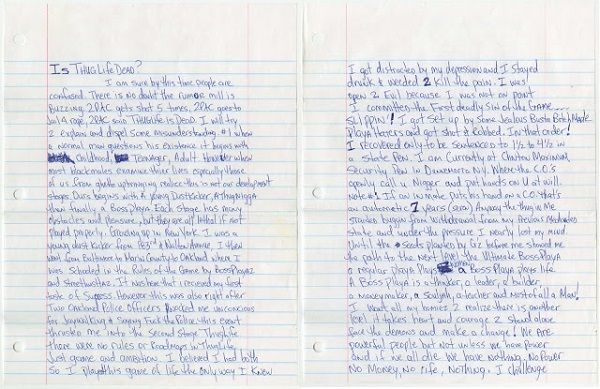 Is THUG Life DEAD?
I am sure by this time people are
confused. There is no doubt the rumor mill is
Buzzing. 2PAC gets shot 5 times, 2PAC goes to
Jail 4 rape, 2PAC said THUGLife is Dead. I will try
2 explain and dispel some misunderstanding. #1 when
a normal man questions his existence it begins with
Childhood, Teenager, Adult. However when
most black males examine their lives especially those
of us from ghetto upbringing realize this is not our development
stages. Ours begins with a Young Dustkicker, A Thug Nigga
then finally a Boss Playa. Each stage has many
obstacles and pleasure, but they are all lethal if not
played properly. Growing up in New York I was a
young dust kicker from 183rd & Walton Avenue, I then
went from Baltimore to Marin County to Oakland where I
was schooled in the Rules of the Game by Boss Playaz
and Streethustlaz. It was here that I received my first
taste of Success. However this was also right after
Two Oakland Police Officers knocked me unconscious
for Jaywalking & Saying Fuck the Police. This event
thrusted me into the Second Stage Thuglife
there were no rules or Roadmaps in Thug Life,
Just game and ambition. I believed I had both
So I played this game of life the only way I knew
I got distracted by my depression and I stayed
drunk & weeded 2 kill the pain. I was
open 2 Evil because I was not on point
I committed the First deadly Sin of the Game....
SLIPPIN'! I got set up by Some Jealous Busta Bitch Made
Playa Haters and got shot & Robbed. In that order!
I recovered only to be sentenced to 1½ to 4½ in
a State Pen. I am Currently at Clinton Maximum
Security Pen in Dannemora NY. Where the C.O.'s
openly call u Nigger and put hands on U at will.
Note #1 If an inmate puts his hand on a C.O. that's
an automatic 7 years (xtra) Anyway the thug in Me
Started 2 from withdrawal from my Previous
state and under the pressure I nearly lost my mind.
Until the seeds planted by Gz before me showed me
the path to the next level the Ultimate Boss Playa
a regular Playa Plays a Boss Playa plays life.
A Boss Playa is a thinker, a leader, a builder,
a moneymaker, a Souljah, a teacher and Most of all a Man!
I want all my homiez 2 realize there is another
level it takes heart and courage 2 Stand alone
face the demons and make a change! We are
powerful people but not unless we have Power
and if we all die we have nothing. No Power
No Money, No life, Nothing. I challenge